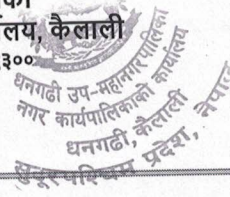 लय, कैलाली
३००
धनगढी उप-महानगरपालिका
नगर कार्यपालिकाको कार्यालय
धनगढी, कैलाली
सुदूरपश्चिम प्रदेश, नेपाल